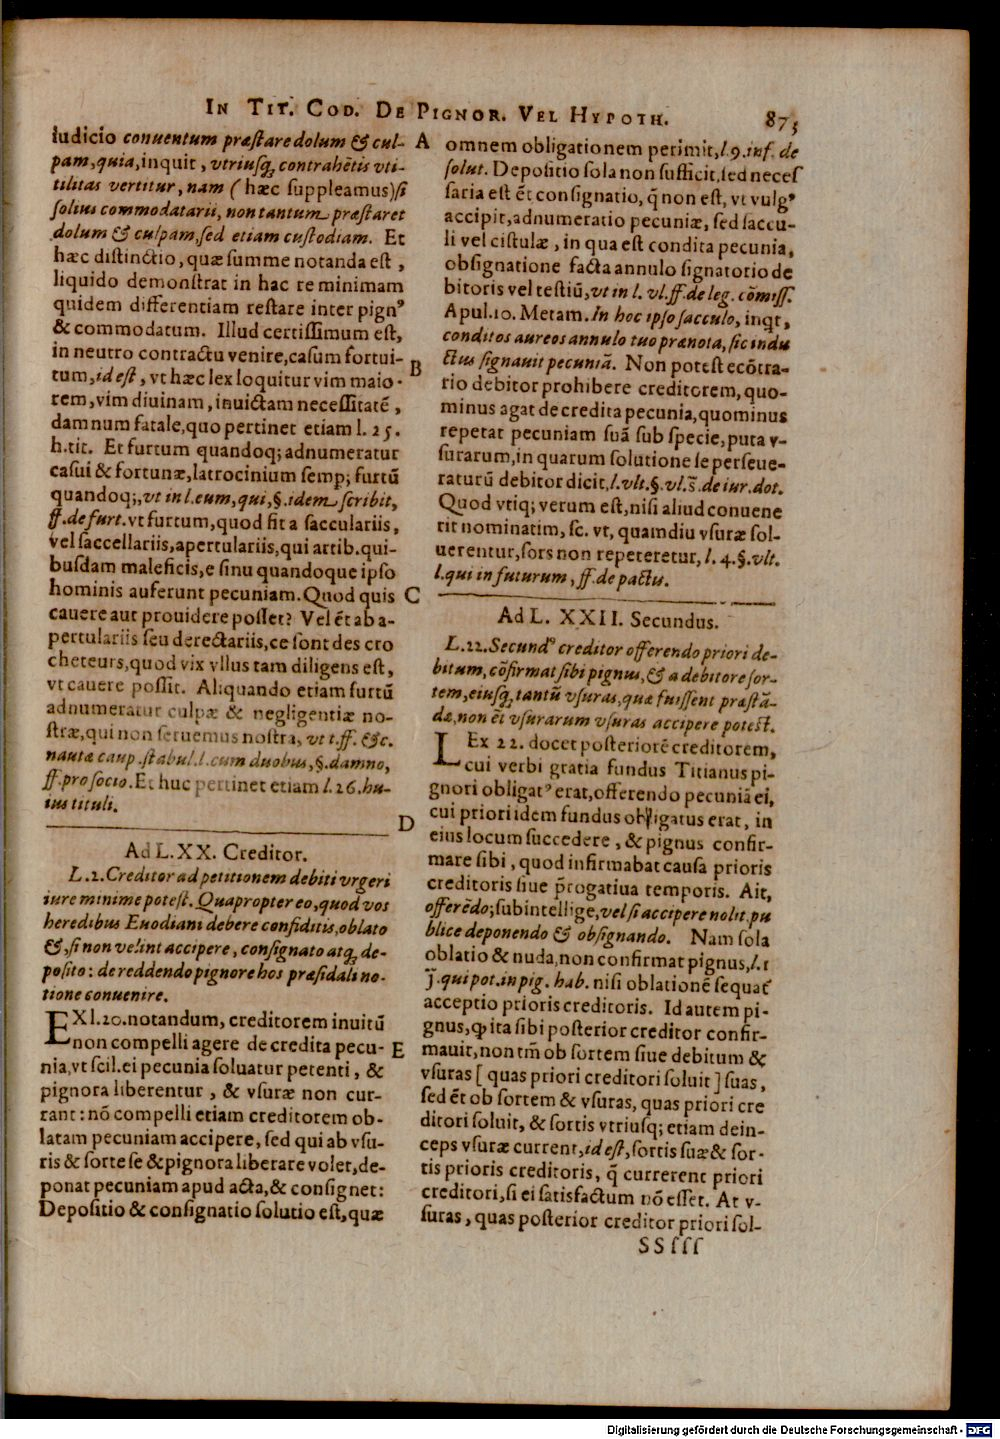 IN TIT. COD. DE PIGNOR. VEL HYPOTH. 875
iudicio conuentum præſtare dolum & cul-
pam, quia, inquit, vtriuſq; contrahētis vti-
tilitas vertitur, nam (hæc ſuppleamus) ſi
ſolius commodatarii, non tantum præſtaret
dolum & culpam, ſed etiam cuſtodiam. Et
hæc diſtinctio, quæ ſumme notanda eſt,
liquido demonſtrat in hac re minimam
quidem differentiam reſtare inter pignꝰ
& commodatum. Illud certiſſimum eſt,
in neutro contractu venire, caſum fortui-
tum, id eſt, vt hæc lex loquitur vim maio-
rem, vim diuinam, inuictam neceſſitatē,
damnum fatale, quo pertinet etiam l. 25.
h. tit. Et furtum quandoq; adnumeratur
caſui & fortunæ, latrocinium ſemp; furtū
quandoq;, vt in l. eum, qui, §. idem ſcribit,
ff. de furt. vt furtum, quod fit a ſacculariis,
vel ſaccellariis, apertulariis, qui artib. qui-
buſdam maleficis, e ſinu quandoque ipſo
hominis auferunt pecuniam. Quod quis
cauere aut prouidere poſſet? Vel ēt ab a-
pertulariis ſeu derectariis, ce ſont des cro
cheteurs, quod vix vllus tam diligens eſt,
vt cauere poſſit. Aliquando etiam furtū
adnumeratur culpæ & negligentiæ no-
ſtræ, qui non ſeruemus noſtra, vt t. ff. &c.
nautæ caup. ſtabul. l. cum duobus, §. damno,
ff. pro ſocio. Et huc pertinet etiam l. 26. hu-
ius tituli.
Ad L. XX. Creditor.
L. 2. Creditor ad petitionem debiti vrgeri
iure minime poteſt. Quapropter eo, quod vos
heredibus Euodiani debere confiditis, oblato
&, ſi non velint accipere, conſignato atq; de-
poſito: de reddendo pignore hos præſidali no-
tione conuenire.
EX l. 20. notandum, creditorem inuitū
non compelli agere de credita pecu-
nia, vt ſcil. ei pecunia ſoluatur petenti, &
pignora liberentur, & vſuræ non cur-
rant: nō compelli etiam creditorem ob-
latam pecuniam accipere, ſed qui ab vſu-
ris & ſorte ſe & pignora liberare volet, de-
ponat pecuniam apud acta, & conſignet:
Depoſitio & conſignatio ſolutio eſt, quæ
A
B
C
D
E
omnem obligationem perimit, l. 9. inf. de
ſolut. Depoſitio ſola non ſufficit, ſed neceſ
ſaria eſt ēt conſignatio, q̄ non eſt, vt vulgꝰ
accipit, adnumeratio pecuniæ, ſed ſaccu-
li vel ciſtulæ, in qua eſt condita pecunia,
obſignatione facta annulo ſignatorio de
bitoris vel teſtiū, vt in l. vl. ff. de leg. cōmiſſ.
Apul. 10. Metam. In hoc ipſo ſacculo, inqt,
conditos aureos annulo tuo prænota, ſic indu
ctus ſignauit pecuniā. Non poteſt ecōtra-
rio debitor prohibere creditorem, quo-
minus agat de credita pecunia, quominus
repetat pecuniam ſuā ſub ſpecie, puta v-
ſurarum, in quarum ſolutione ſe perſeue-
raturū debitor dicit, l. vlt. §. vl. s̄. de iur. dot.
Quod vtiq; verum eſt, niſi aliud conuene
rit nominatim, ſc. vt, quamdiu vſuræ ſol-
uerentur, ſors non repeteretur, l. 4. §. vlt.
l. qui in futurum, ff. de pactu.
Ad L. XXII. Secundus.
L. 22. Secundꝰ creditor offerendo priori de-
bitum, cōfirmat ſibi pignus, & a debitore ſor-
tem, eiuſq; tantū vſuras, quæ fuiſſent præſtā-
dæ, non ēt vſurarum vſuras accipere poteſt.
LEx 22. docet poſteriorē creditorem,
cui verbi gratia fundus Titianus pi-
gnori obligatꝰ erat, offerendo pecuniā ei,
cui priori idem fundus obligatus erat, in
eius locum ſuccedere, & pignus confir-
mare ſibi, quod infirmabat cauſa prioris
creditoris ſiue p̄rogatiua temporis. Ait,
offerēdo; ſubintellige, vel ſi accipere nolit, pu
blice deponendo & obſignando. Nam ſola
oblatio & nuda, non confirmat pignus, l. 1
qui pot. in pig. hab. niſi oblationē ſequat᷑
acceptio prioris creditoris. Id autem pi-
gnus, ꝙ ita ſibi poſterior creditor confir-
mauit, non tm̄ ob ſortem ſiue debitum &
vſuras [ quas priori creditori ſoluit ] ſuas,
ſed ēt ob ſortem & vſuras, quas priori cre
ditori ſoluit, & ſortis vtriuſq; etiam dein-
ceps vſuræ current, id eſt, ſortis ſuæ & ſor-
tis prioris creditoris, q̄ currerent priori
creditori, ſi ei ſatisfactum nō eſſet. At v-
ſuras, quas poſterior creditor priori ſol-
SS ſſſ
Digitalisierung gefördert durch die Deutsche Forschungsgemeinschaft - DFG